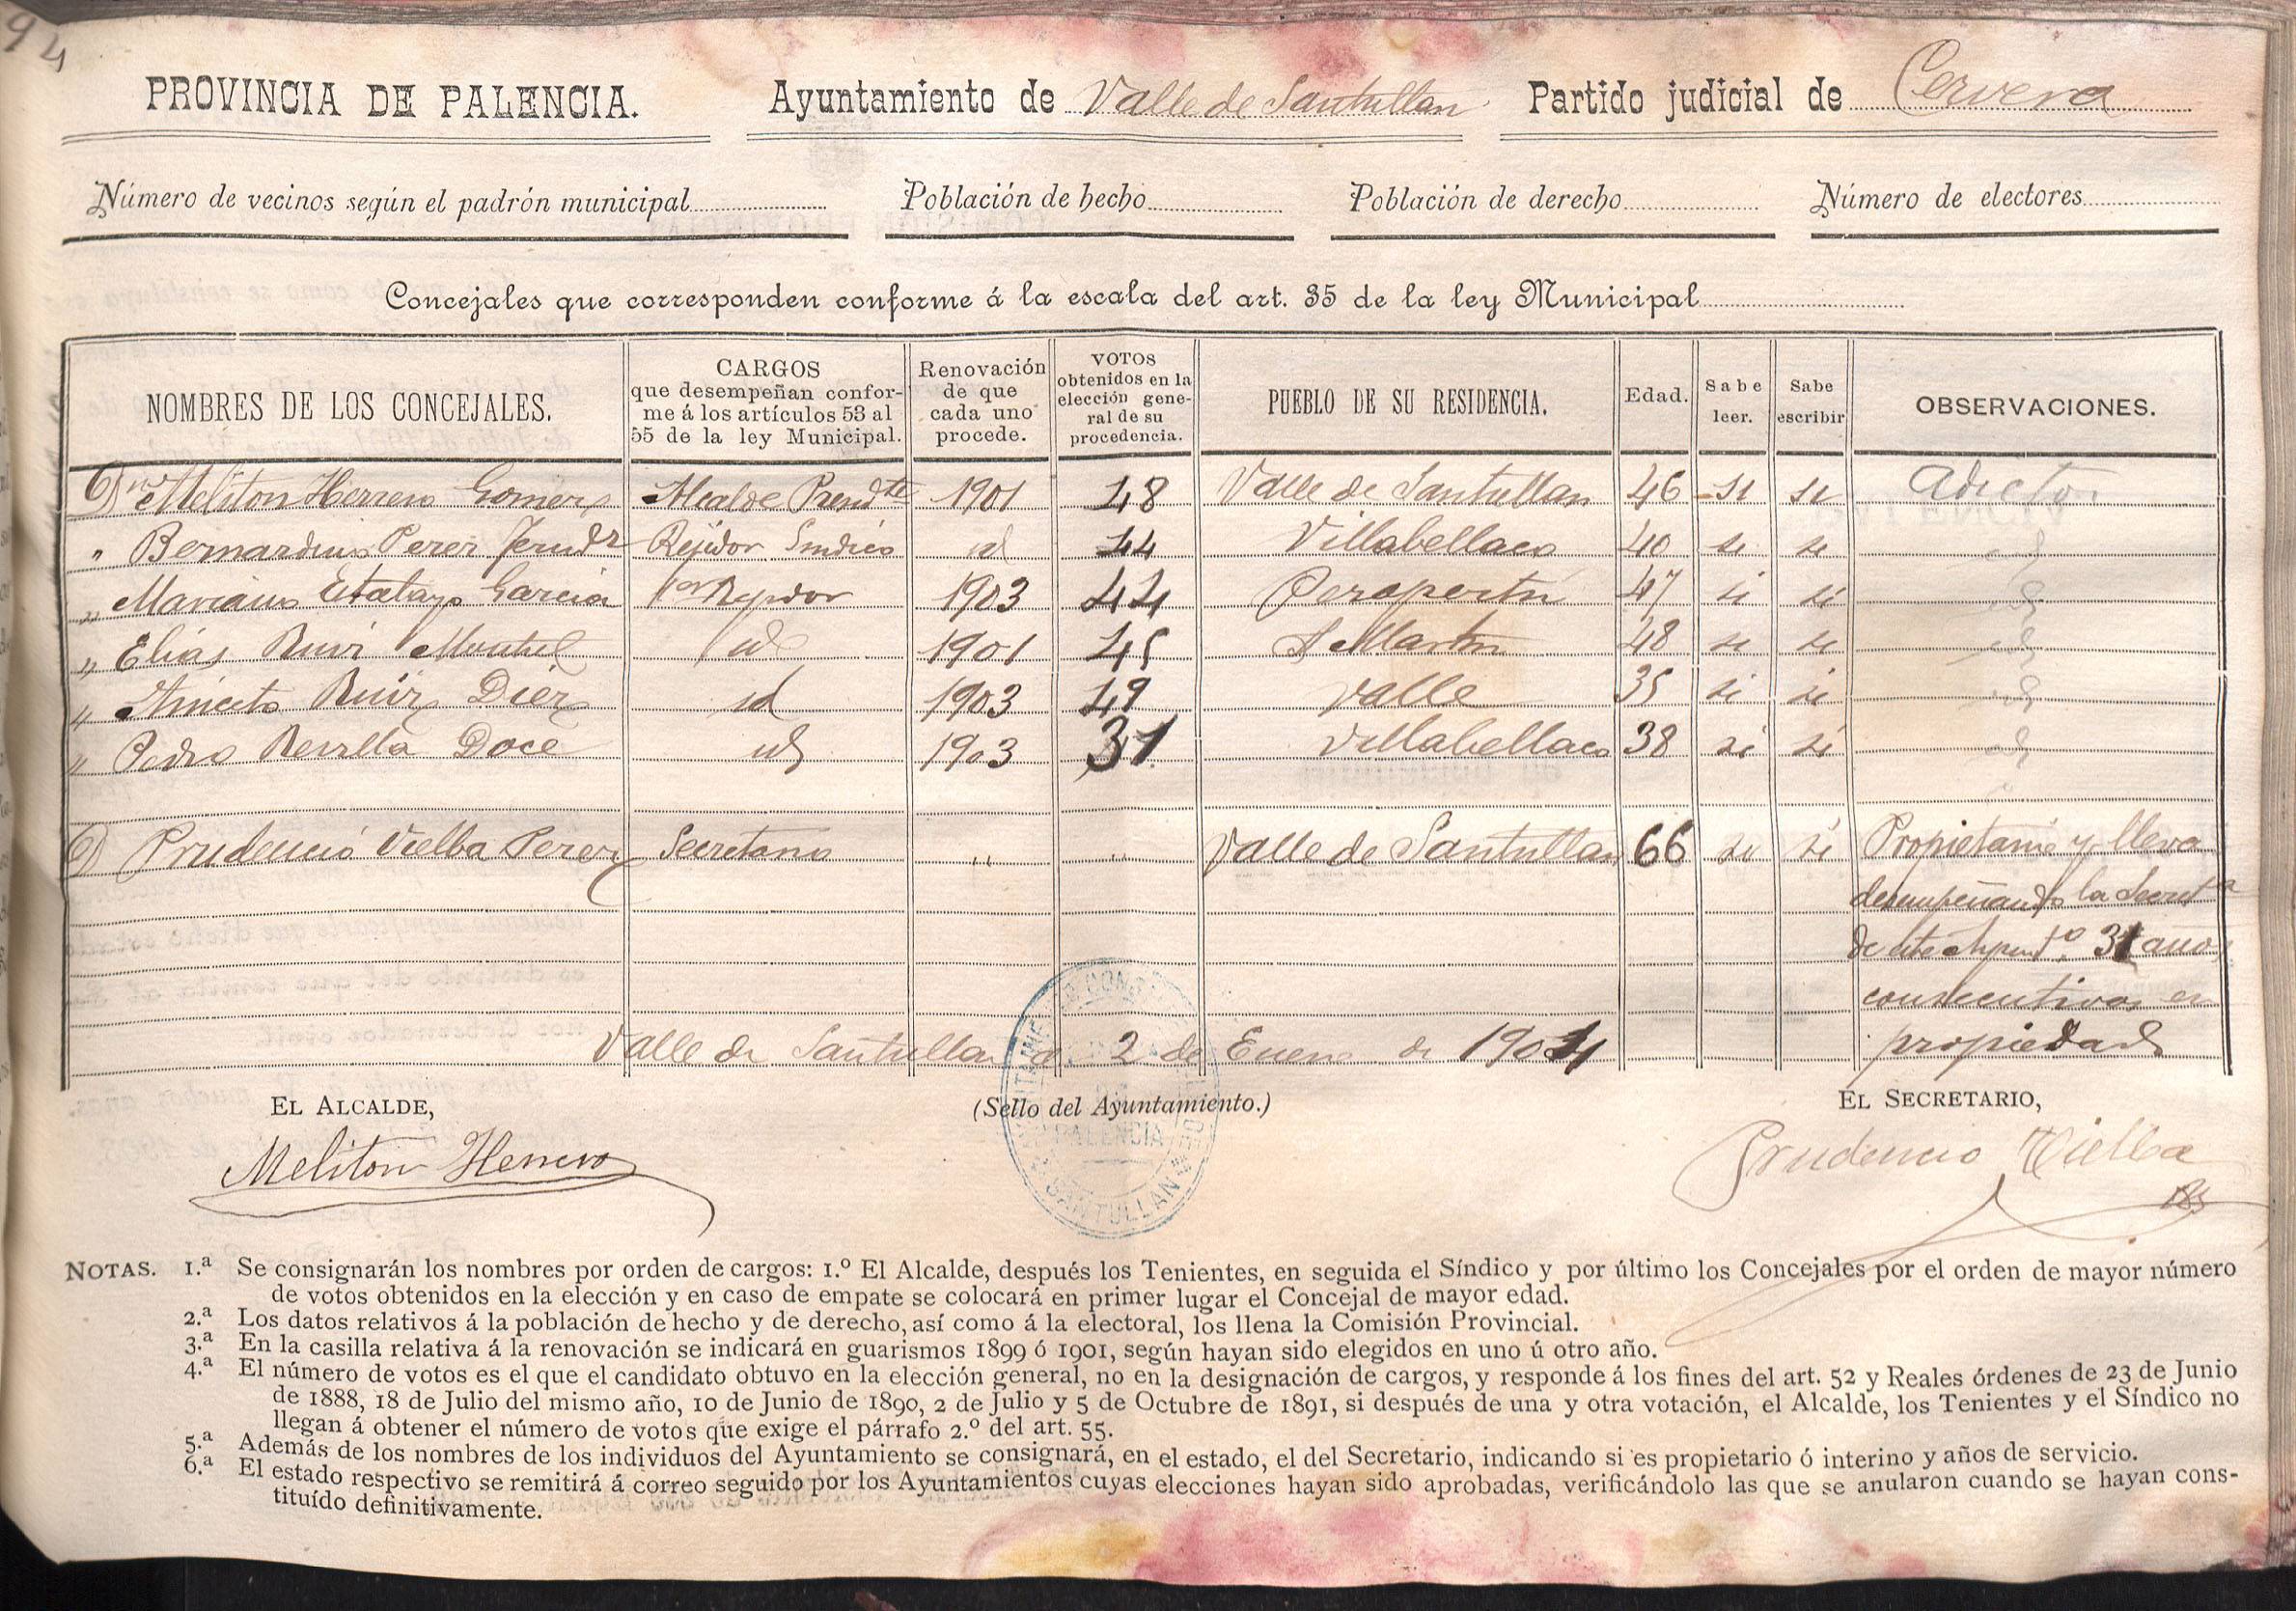 94
PROVINCIA DE PALENCIA. Ayuntamiento de Valle de Santullan Partido judicial de Cervera
Número de vecinos según el padrón municipal Población de hecho Población de derecho Número de electores
Concejales que corresponden conforme á la escala del art. 35 de la ley Municipal
NOMBRES DE LOS CONCEJALES. CARGOS que desempeñan confor- me á los artículos 53 al 55 de la ley Municipal. Renovación de que cada uno procede. VOTOS obtenidos en la elección gene- ral de su procedencia. PUEBLO DE SU RESIDENCIA. Edad. Sabe leer. Sabe escribir OBSERVACIONES.
Dn Meliton Herrero Gomez Alcalde Presdte 1901 48 Valle de Santullan 46 si si Adicto
" Bernardino Perez Ferndz Rejidor Sindico id 44 Villabellaco 40 si si id
" Mariano Estalayo Garcia 1er Rejidor 1903 44 Peropertu 47 si si id
" Elias Ruiz Montiel id 1901 45 S Martin 48 si si id
" Aniceto Ruiz Diez id 1903 49 Valle 35 si si id
" Pedro Revilla Doce id 1903 31 Villabellaco 38 si si id
D Prudencio Vielba Perez Secretario " " Valle de Santullan 66 si si Propietario y lleva
desempeñando la Secreta
de este Ayunto 31 años
consecutivos en
propiedad
Valle de Santullan a 2 de Enero de 1904
EL ALCALDE, (Sello del Ayuntamiento.) EL SECRETARIO,
Meliton Herrero PALENCIA SANTULLAN Prudencio Vielba
NOTAS. 1.ª Se consignarán los nombres por orden de cargos: 1.º El Alcalde, después los Tenientes, en seguida el Síndico y por último los Concejales por el orden de mayor número
de votos obtenidos en la elección y en caso de empate se colocará en primer lugar el Concejal de mayor edad.
2.ª Los datos relativos á la población de hecho y de derecho, así como á la electoral, los llena la Comisión Provincial.
3.ª En la casilla relativa á la renovación se indicará en guarismos 1899 ó 1901, según hayan sido elegidos en uno ú otro año.
4.ª El número de votos es el que el candidato obtuvo en la elección general, no en la designación de cargos, y responde á los fines del art. 52 y Reales órdenes de 23 de Junio
de 1888, 18 de Julio del mismo año, 10 de Junio de 1890, 2 de Julio y 5 de Octubre de 1891, si después de una y otra votación, el Alcalde, los Tenientes y el Síndico no
llegan á obtener el número de votos que exige el párrafo 2.º del art. 55.
5.ª Además de los nombres de los individuos del Ayuntamiento se consignará, en el estado, el del Secretario, indicando si es propietario ó interino y años de servicio.
6.ª El estado respectivo se remitirá á correo seguido por los Ayuntamientos cuyas elecciones hayan sido aprobadas, verificándolo las que se anularon cuando se hayan cons-
tituído definitivamente.